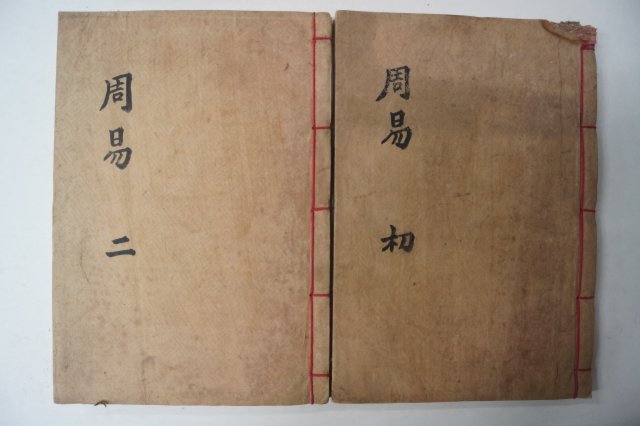 周易 初
周易 二